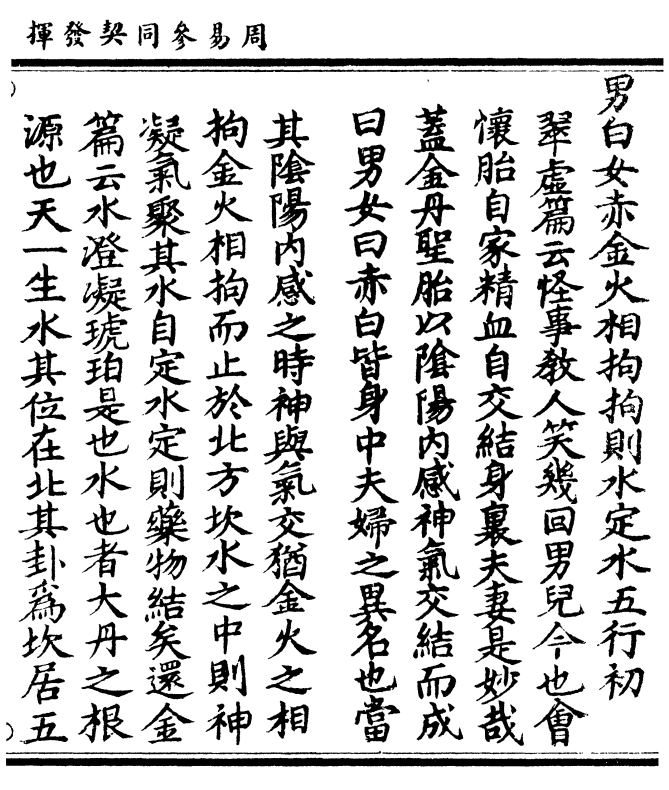 周易參同契發揮
男白女赤金火相拘拘則水定水五行初
翠虛篇云怪事敎人笑幾回男兒今也會
懷胎自家精血自交結身裏夫妻是妙哉
蓋金丹聖胎以陰陽内感神氣交結而成
曰男女曰赤白皆身中夫婦之異名也當
其陰陽内感之時神與氣交猶金火之相
拘金火相拘而止於北方坎水之中則神
凝氣聚其水自定水定則藥物結矣還金
篇云水澄凝琥珀是也水也者大丹之根
源也天一生水其位在北其卦爲坎居五